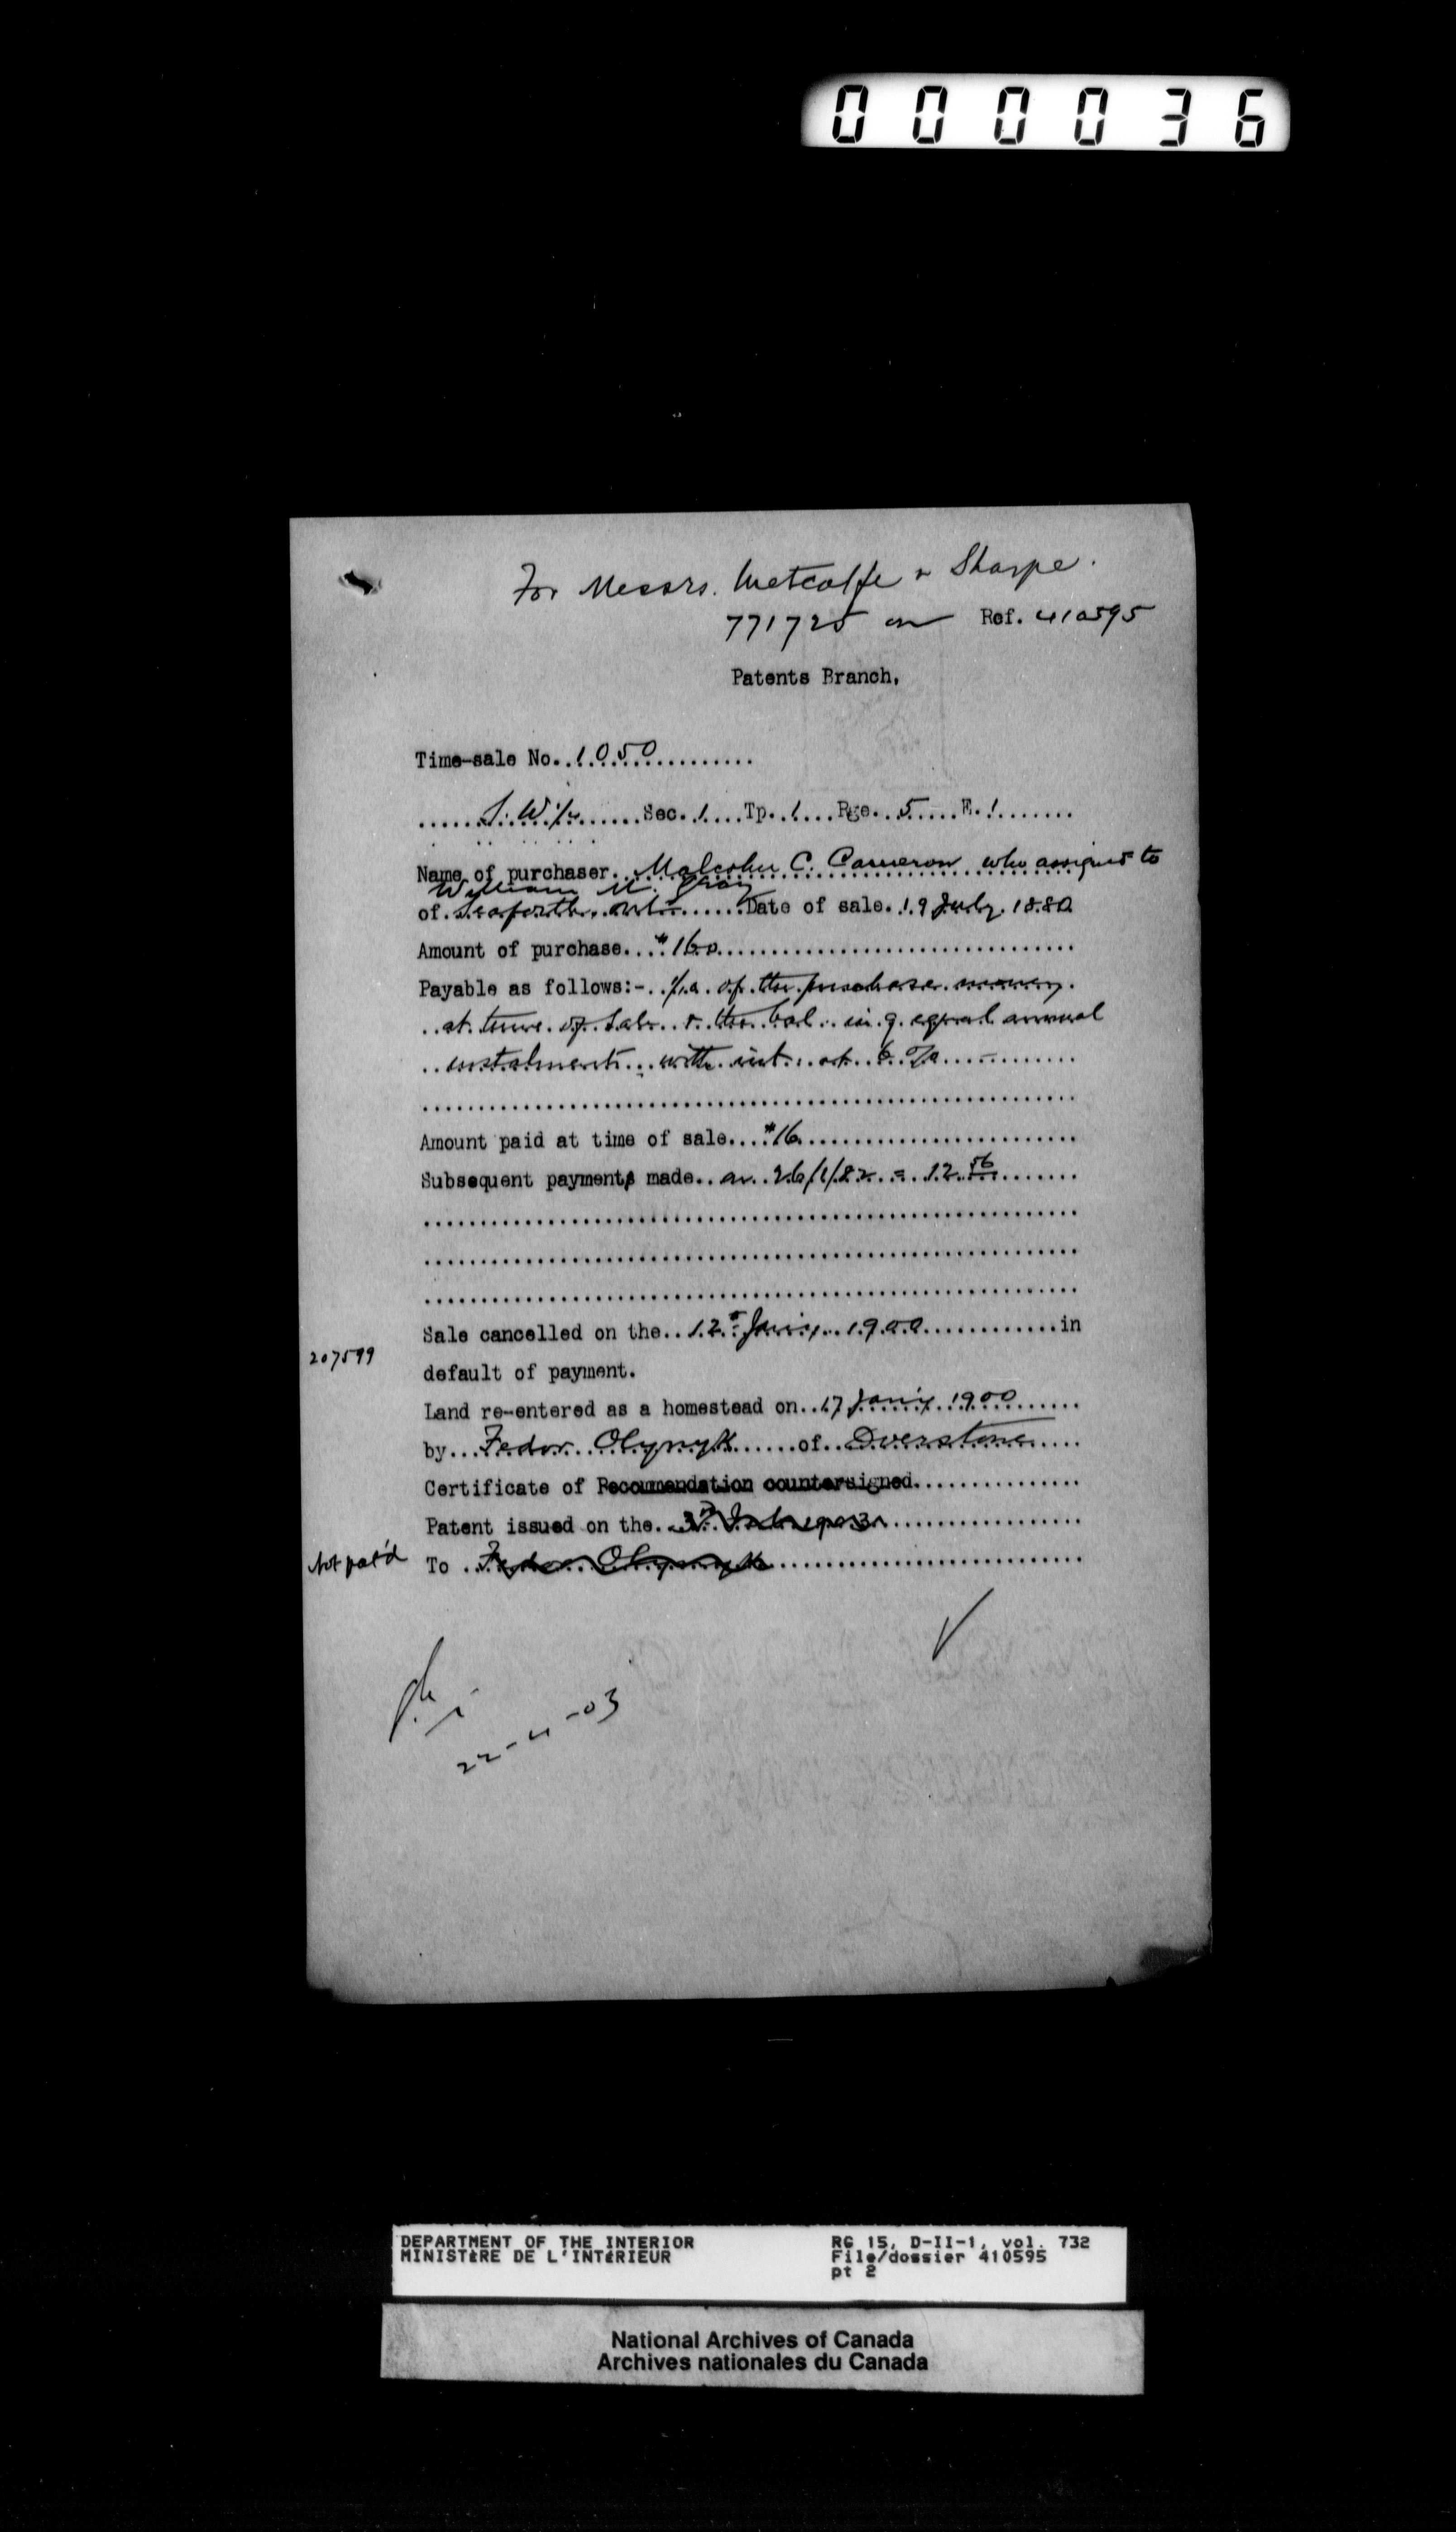 000036
For Messrs. Metcalfe & Sharpe.
771725 on Ref. 410595
Patents Branch,
Time-sale No. 1050
S.W. 1/4 Sec. 1 Tp. 1 Rge. 5 E. 1
Name of purchaser Malcolm C. Cameron who assigned to
William N. Gray
of Seaforth Ont Date of sale. 19 July. 1880
Amount of purchase $160
Payable as follows:- 1/10 of the purchase money
at time of Sale & the bal. in 9 equal annual
instalments with int. at 6 %
Amount paid at time of sale $16
Subsequent payments made on 26/1/82 = 12.56
Sale cancelled on the 12th Jan'y 1900 in
207599
default of payment.
Land re-entered as a homestead on 17 Jan'y 1900
by Fedor Olynyk of Overstone
Certificate of Recommendation countersigned
Patent issued on the 3rd 1903
Not pat'd To Fedor Olynyk
22-4-03
DEPARTMENT OF THE INTERIOR RG 15, D-II-1, vol. 732
MINISTÈRE DE L'INTÉRIEUR File/dossier 410595
pt 2
National Archives of Canada
Archives nationales du Canada